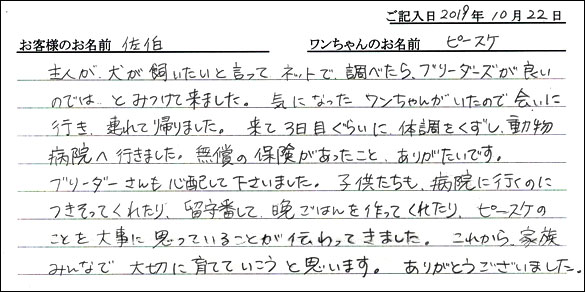 ご記入日 2019年 10月 22日
お客様のお名前 佐伯 ワンちゃんのお名前 ピースケ
主人が、犬が飼いたいと言って ネットで、調べたら、ブリーダーズが良い
のでは とみつけて来ました。 気になった ワンちゃんがいたので 会いに
行き、連れて帰りました。 来て 3日目ぐらいに、体調をくずし、動物
病院へ 行きました。 無償の保険があったこと、ありがたいです。
ブリーダーさんも 心配して 下さいました。 子供たちも、病院に行くのに
つきそってくれたり、 留守番して、晩ごはんを作ってくれたり、ピースケの
ことを 大事に 思っていることが 伝わってきました。 これから、家族
みんなで 大切に 育てていこうと 思います。 ありがとうございました。